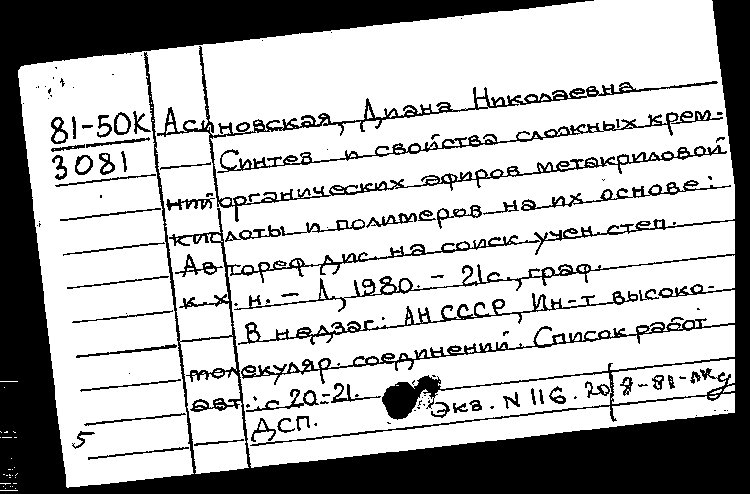 81-50К Асиновская, Диана Николаевна
3081 Синтез и свойства сложных крем-
нийорганических эфиров метакриловой
кислоты и полимеров на их основе:
Автореф. дис. на соиск. учен. степ.
к. х. н. – Л., 1980. – 21с., граф.
В надзаг.: АН СССР, Ин-т высоко-
молекуляр. соединений. Список работ
авт.: с 20-21.
Экз. N 116.
ДСП.
5